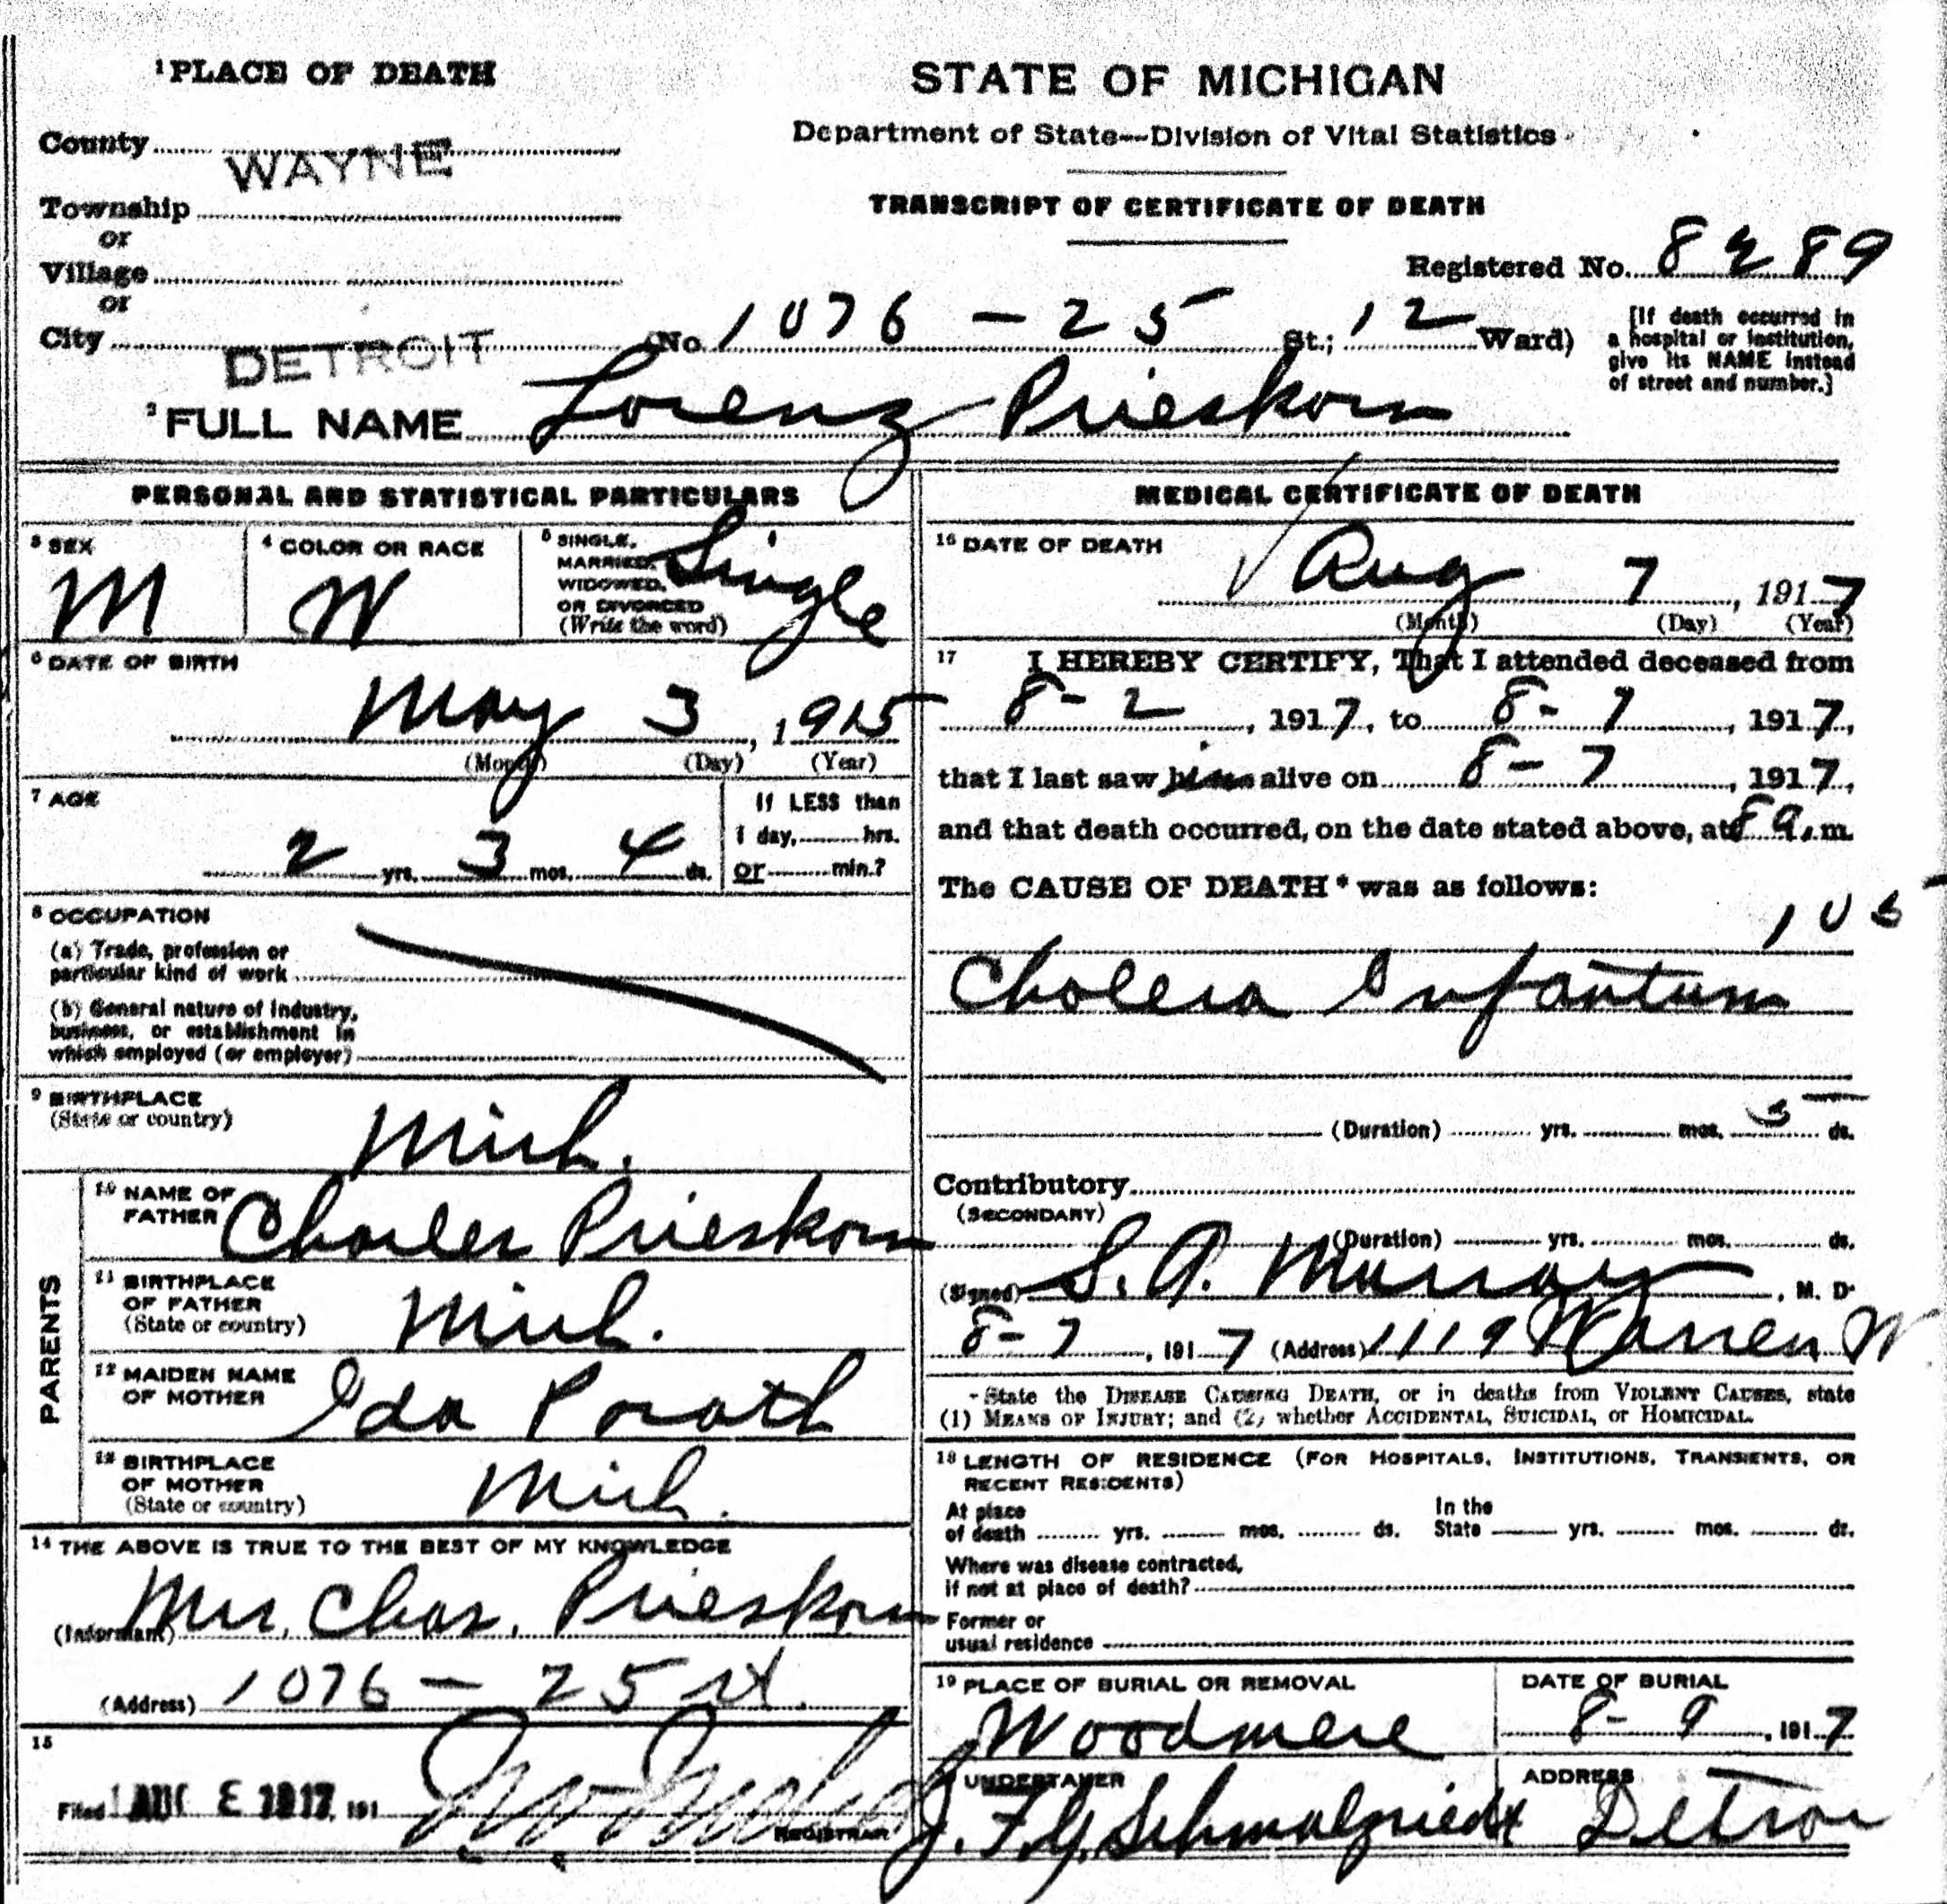 1 PLACE OF DEATH
County WAYNE
Township
or
Village
or
City DETROIT
STATE OF MICHIGAN
Department of State—Division of Vital Statistics
TRANSCRIPT OF CERTIFICATE OF DEATH
Registered No. 8289
(No. 1076 - 25 St.; 12 Ward)
[If death occurred in
a hospital or institution,
give its NAME instead
of street and number.]
2 FULL NAME Lorenz Prieskorn
PERSONAL AND STATISTICAL PARTICULARS
3 SEX
M
4 COLOR OR RACE
W
5 SINGLE,
MARRIED,
WIDOWED,
OR DIVORCED
(Write the word)
Single
6 DATE OF BIRTH
May 3, 1915
(Month) (Day) (Year)
7 AGE
2 yrs. 3 mos. 4 ds.
If LESS than
1 day, hrs.
or min.?
8 OCCUPATION
(a) Trade, profession or
particular kind of work
(b) General nature of industry,
business, or establishment in
which employed (or employer)
9 BIRTHPLACE
(State or country)
Mich.
PARENTS
10 NAME OF
FATHER
Charles Prieskorn
11 BIRTHPLACE
OF FATHER
(State or country)
Mich.
12 MAIDEN NAME
OF MOTHER
Ida Porath
13 BIRTHPLACE
OF MOTHER
(State or country)
Mich.
14 THE ABOVE IS TRUE TO THE BEST OF MY KNOWLEDGE
(Informant) Mrs. Chas. Prieskorn
(Address) 1076 - 25 st.
15
Filed AUG 1917, 191
REGISTRAR
MEDICAL CERTIFICATE OF DEATH
16 DATE OF DEATH
Aug 7, 1917
(Month) (Day) (Year)
17 I HEREBY CERTIFY, That I attended deceased from
8-2, 1917, to 8-7, 1917,
that I last saw him alive on 8-7, 1917,
and that death occurred, on the date stated above, at 8 a.m.
The CAUSE OF DEATH* was as follows:
105
Cholera Infantum
(Duration) yrs. mos. 5 ds.
Contributory
(SECONDARY)
(Duration) yrs. mos. ds.
(Signed) S. A. Murray, M. D.
8-7, 1917 (Address) 1119 Warren W
*State the DISEASE CAUSING DEATH, or in deaths from VIOLENT CAUSES, state
(1) MEANS OF INJURY; and (2) whether ACCIDENTAL, SUICIDAL, or HOMICIDAL.
18 LENGTH OF RESIDENCE (FOR HOSPITALS, INSTITUTIONS, TRANSIENTS, OR
RECENT RESIDENTS)
At place
of death yrs. mos. ds.
In the
State yrs. mos. ds.
Where was disease contracted,
if not at place of death?
Former or
usual residence
19 PLACE OF BURIAL OR REMOVAL
Woodmere
DATE OF BURIAL
8-9, 1917
20 UNDERTAKER
J. F. G. Schmalzriedt
ADDRESS
Detroi